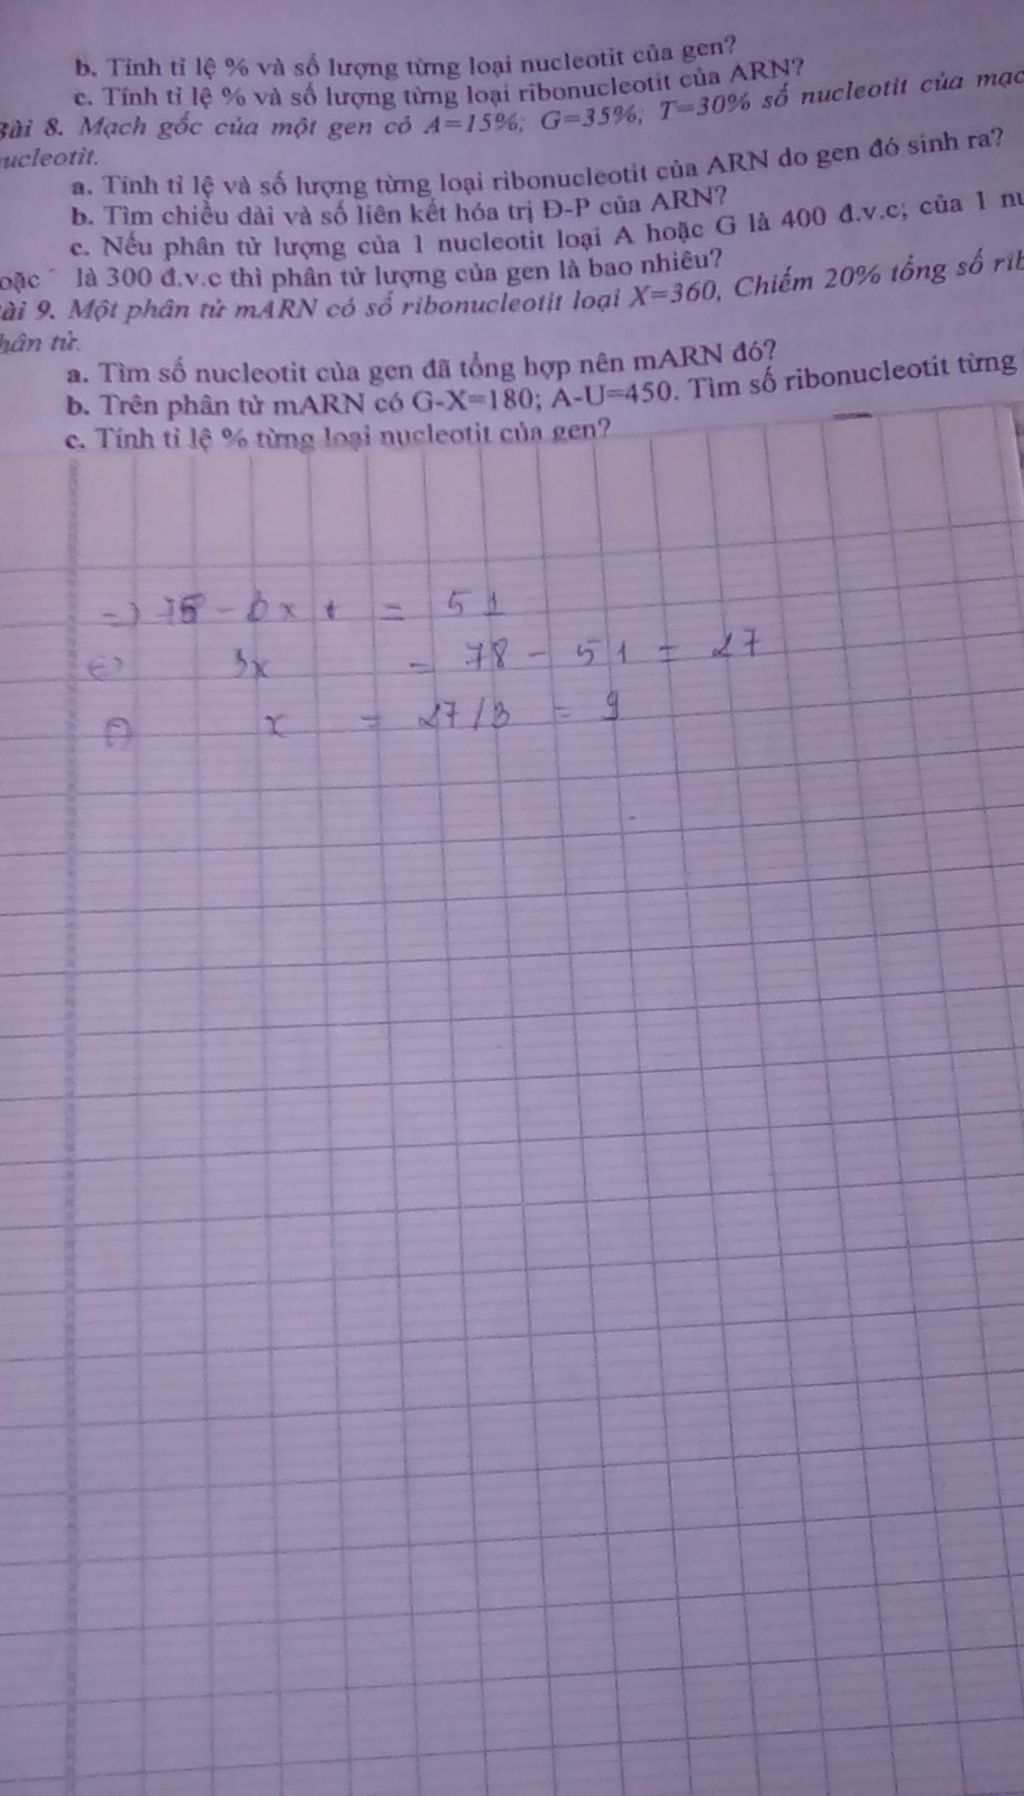 b. Tính tỉ lệ % và số lượng từng loại nucleotit của gen?
c. Tính tỉ lệ % và số lượng từng loại ribonucleotit của ARN?
Bài 8. Mạch gốc của một gen có A=15%; G=35%; T=30% số nucleotit của mạc
ucleotit.
a. Tính tỉ lệ và số lượng từng loại ribonucleotit của ARN do gen đó sinh ra?
b. Tìm chiều dài và số liên kết hóa trị Đ-P của ARN?
c. Nếu phân tử lượng của 1 nucleotit loại A hoặc G là 400 đ.v.c; của 1 nu
oặc là 300 đ.v.c thì phân tử lượng của gen là bao nhiêu?
ài 9. Một phân tử mARN có số ribonucleotit loại X=360, Chiếm 20% tổng số rib
hân tử.
a. Tìm số nucleotit của gen đã tổng hợp nên mARN đó?
b. Trên phân tử mARN có G-X=180; A-U=450. Tìm số ribonucleotit từng
c. Tính tỉ lệ % từng loại nucleotit của gen?
= 51
3x = 78 - 51 = 27
x = 27/3 = 9